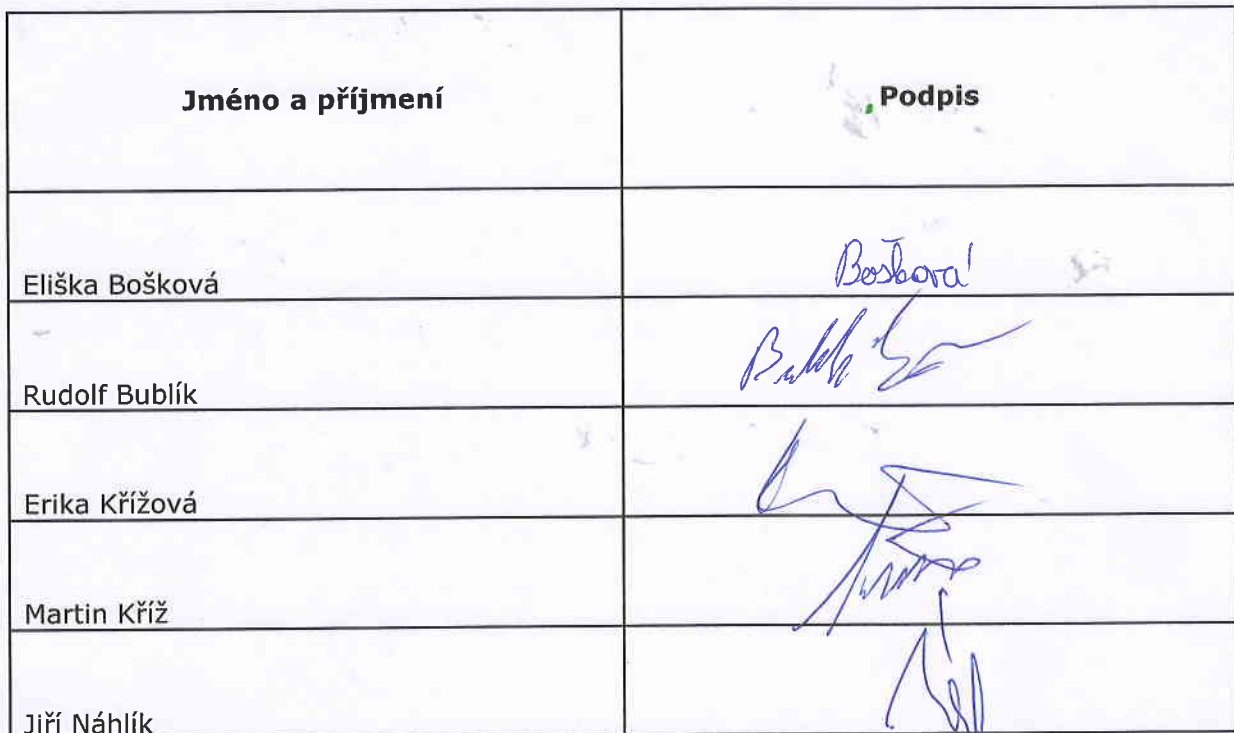 Jméno a příjmení
Podpis
Eliška Bošková
Bošková
Rudolf Bublík
Erika Křížová
Martin Kříž
Jiří Náhlík